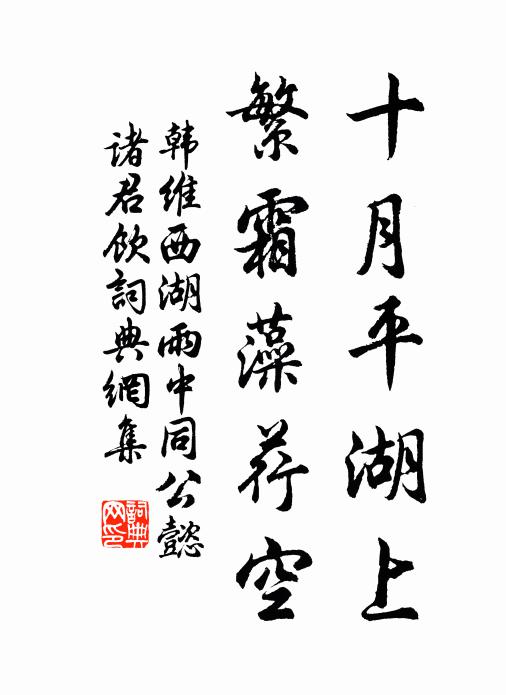 十月平湖上
繁霜藻荇空
韩维西湖雨中同公懿
诸君饮詞典網集
詞典
网印